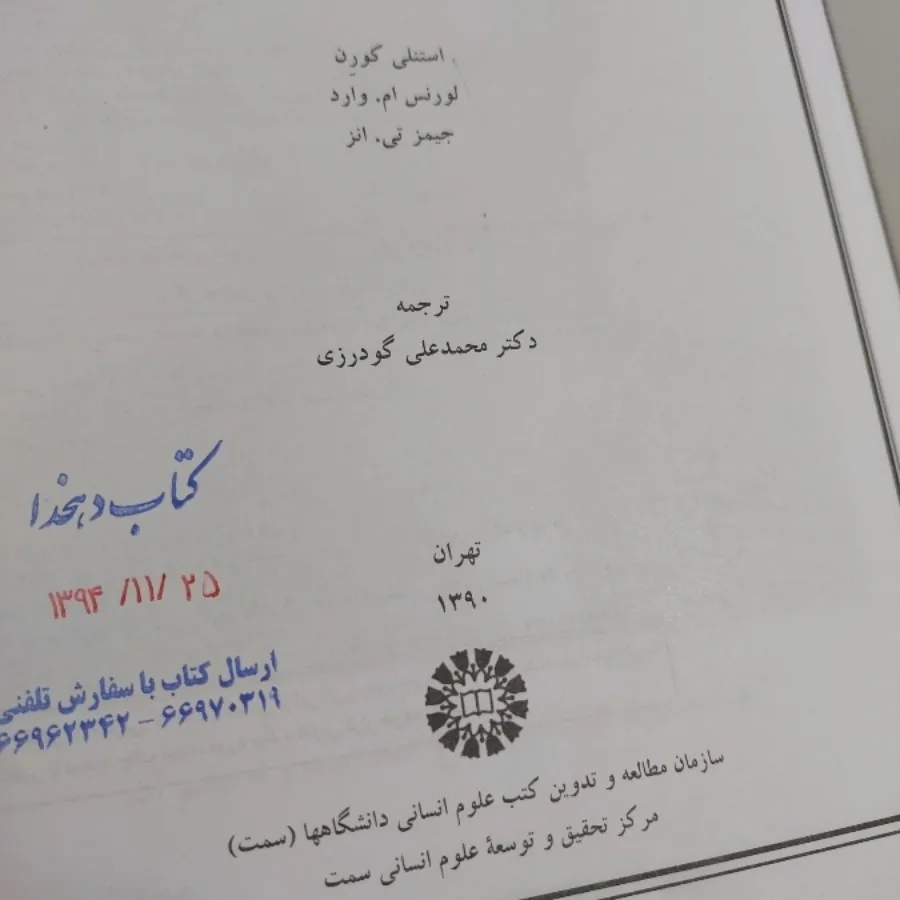 استنلی گورِن
لورنس ام. وارد
جیمز تی. انز
ترجمه
دکتر محمدعلی گودرزی
کتاب دهخدا
۱۳۹۴ /۱۱/ ۲۵
ارسال کتاب با سفارش تلفنی
۶۶۹۶۲۳۴۲ – ۶۶۹۷۰۳۱۹
تهران
۱۳۹۰
سازمان مطالعه و تدوین کتب علوم انسانی دانشگاهها (سمت)
مرکز تحقیق و توسعهٔ علوم انسانی سمت